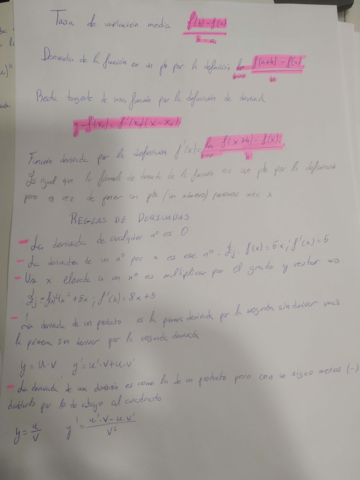 Tasa de variación media f(b)-f(a)
Derivada de la función en un pto por la definición f(a+h)-f(a)
Recta tangente de una función por la definición de derivada
y-f(x₀)=f'(x₀)(x-x₀)
Función derivada por la definición f'(x)= lim f(x+h)-f(x) / h
Es igual que la formula de la función en un pto por la definición
pero en vez de poner un pto (un número) ponemos x
REGLAS DE DERIVADAS
- La derivada de cualquier nº es 0
- La derivada de un nº por x es ese nº Ej: f(x)=5x; f'(x)=5
- Una x elevada a un nº es multiplicar por el grado y restar uno
Ej: f(x)=4x²+5x; f'(x)=8x+5
- La derivada de un producto es la primera derivada por la segunda sin derivar más
la primera sin derivar por la segunda derivada
y=u·v y'=u'·v+u·v'
- La derivada de una división es como la de un producto pero con el signo menos (-)
dividido por lo de abajo al cuadrado
y=u/v y'=u'·v-u·v'/v²